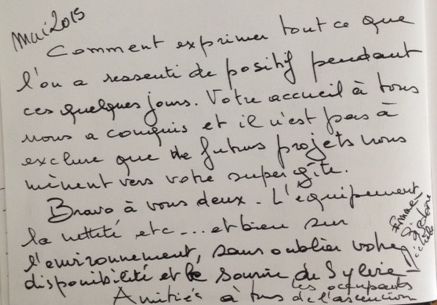 mai 2015
Comment exprimer tout ce que
l'on a ressenti de positif pendant
ces quelques jours. Votre accueil à tous
nous a conquis et il n'est pas à
exclure que de futurs projets nous
mènent vers votre super gîte.
Bravo à vous deux. L'équipement,
la netteté etc... et bien sur
l'environnement, sans oublier votre
disponibilité et le sourire de Sylvie
les occupants
Amitiés à tous de l'ascension